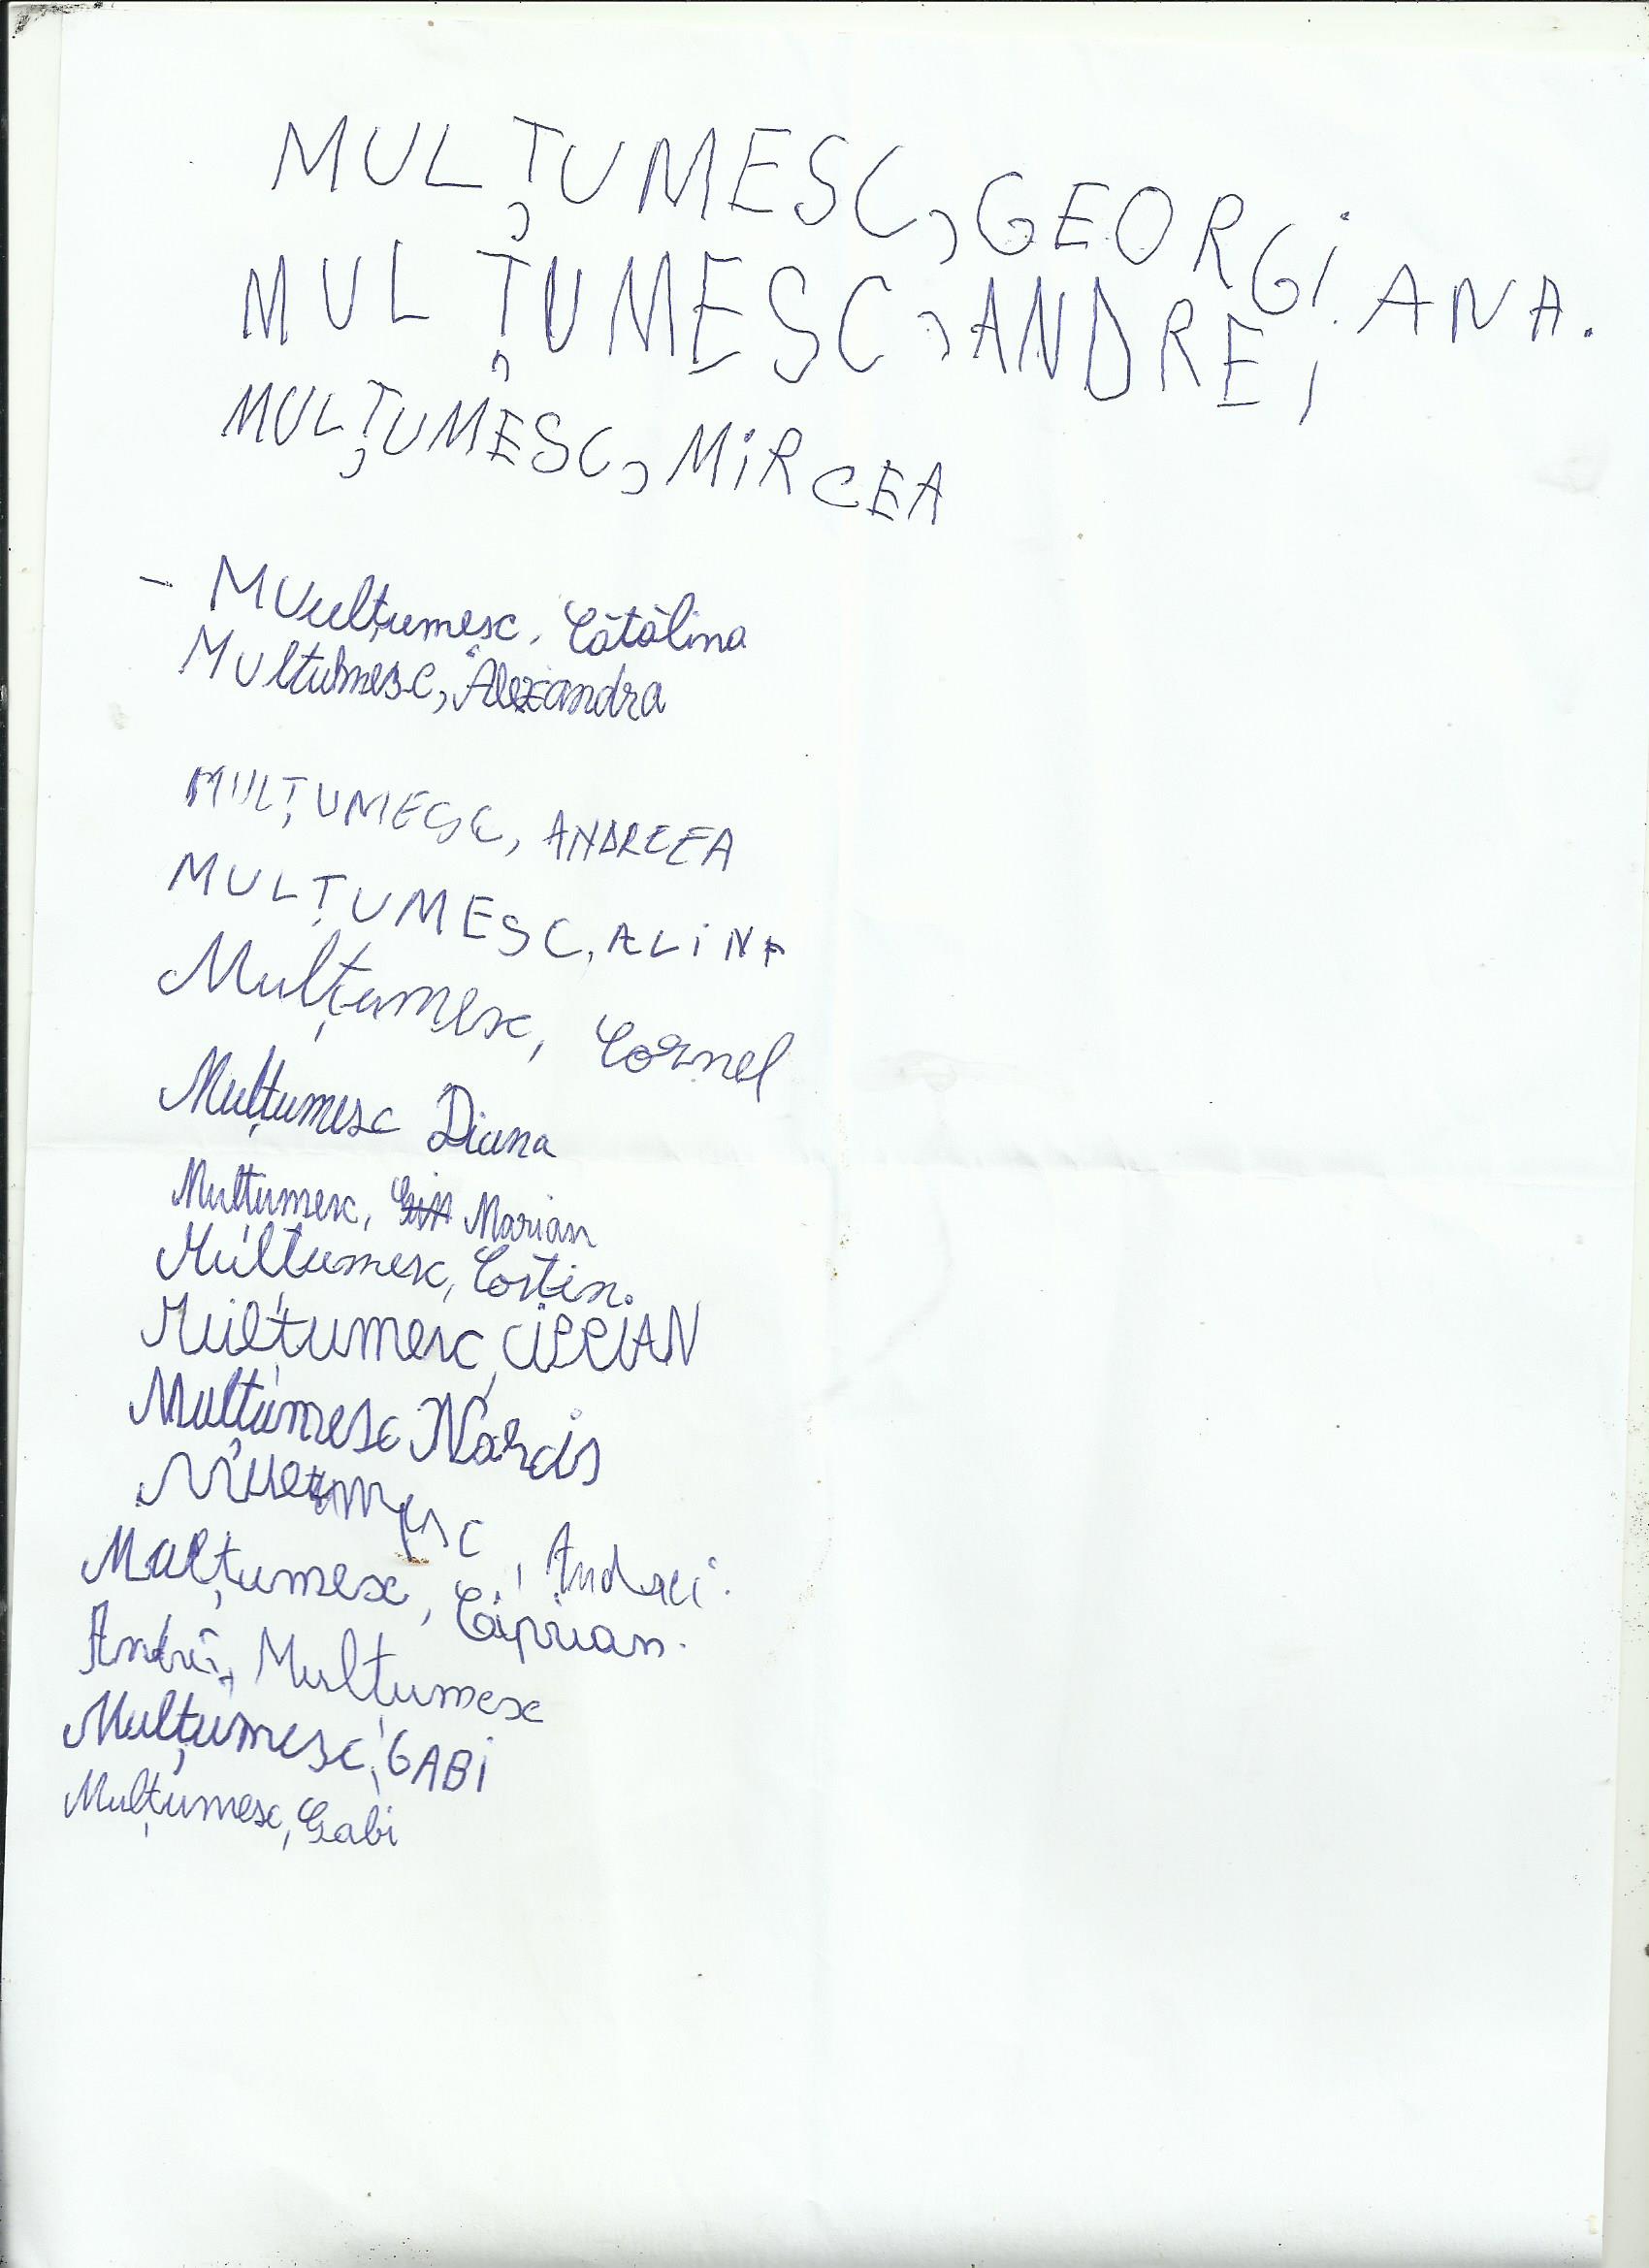 MULȚUMESC, GEORGiANA.
MULȚUMESC, ANDREi
MULȚUMESC, MiRCEA
– MUulțumesc, Cătălina
Multumesc, Alexandra
MULȚUMESC, ANDREEA
MULȚUMESC, ALiNA
Mulțumesc, Cornel
Mulțumesc Diana
Multumesc, Marian
Multumesc, Costin.
Multumesc, CiPRiAN
Mulțumesc Narcis
Multumesc, Andrei.
Mulțumesc, Ciprian.
Andrei, Mulțumesc
Mulțumesc, GABi
Mulțumesc, Gabi